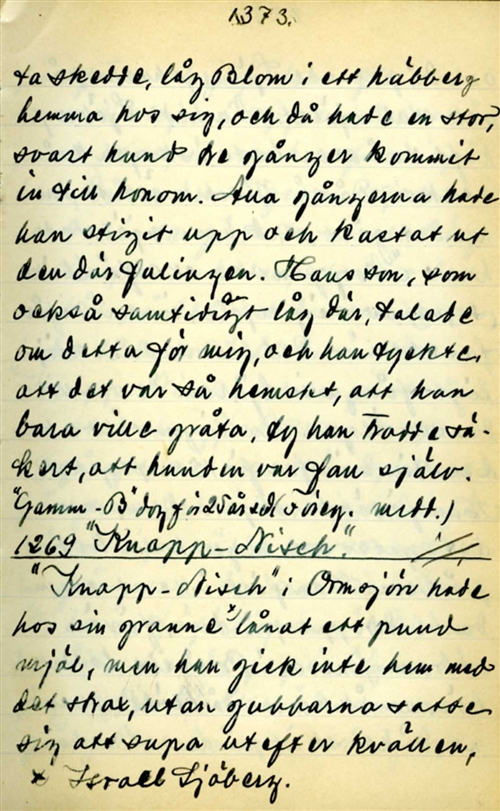 1373.
ta skedde, låg Blom i ett häbberg
hemma hos sig, och då hade en stor,
svart hund tre gånger kommit
in till honom. Alla gångerna hade
han stigit upp och kastat ut
den där fulingen. Hans son, som
också samtidigt låg där, talade
om detta för mig, och han tyckte,
att det var så hemskt, att han
bara ville gråta, ty han trodde sä-
kert, att hunden var fan själv.
"Gamm-B" dog för 25 år sed. (Föreg. medd.)
1269 "Knapp-Nisch".
"Knapp-Nisch" i Ormsjön hade
hos sin granne x) lånat ett pund
mjöl, men han gick inte hem med
det strax, utan gubbarna satte
sig att supa utefter kvällen,
x Israel Sjöberg.